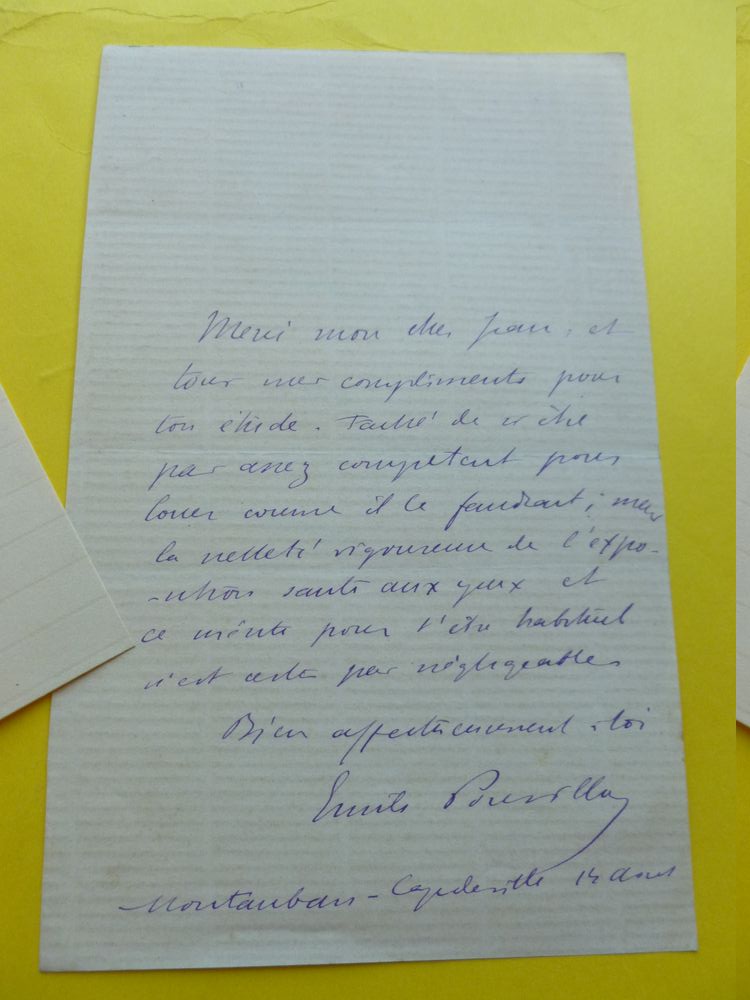 Merci mon cher Jean, et
tous mes compliments pour
ton étude. Fâché de n'être
pas assez compétent pour
louer comme il le faudrait ; mais
la netteté rigoureuse de l'expo-
-sition saute aux yeux et
ce mérite pour t'être habituel
n'est certes pas négligeable.
Bien affectueusement à toi
Emile Pouvillon
Montauban - Capdeville 14 aout